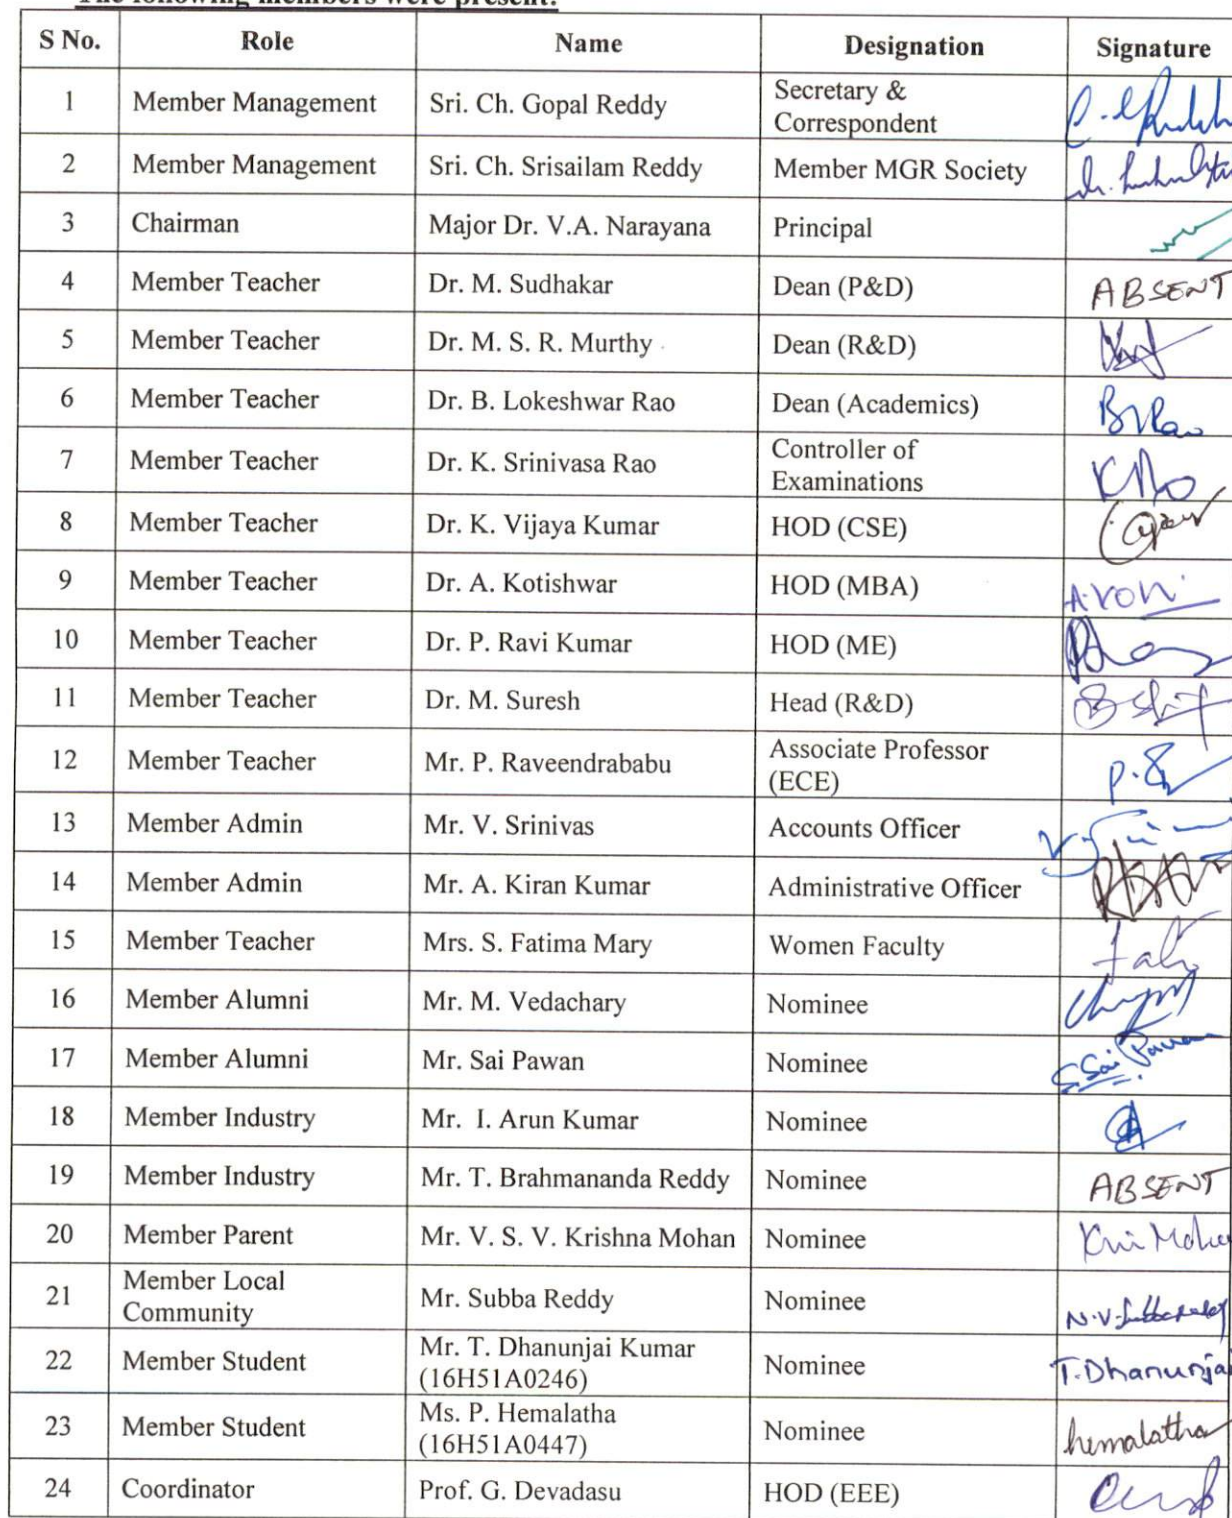 The following members were present:
S No. Role Name Designation Signature
1 Member Management Sri. Ch. Gopal Reddy Secretary & Correspondent
2 Member Management Sri. Ch. Srisailam Reddy Member MGR Society
3 Chairman Major Dr. V.A. Narayana Principal
4 Member Teacher Dr. M. Sudhakar Dean (P&D) ABSENT
5 Member Teacher Dr. M. S. R. Murthy Dean (R&D)
6 Member Teacher Dr. B. Lokeshwar Rao Dean (Academics)
7 Member Teacher Dr. K. Srinivasa Rao Controller of Examinations
8 Member Teacher Dr. K. Vijaya Kumar HOD (CSE)
9 Member Teacher Dr. A. Kotishwar HOD (MBA)
10 Member Teacher Dr. P. Ravi Kumar HOD (ME)
11 Member Teacher Dr. M. Suresh Head (R&D)
12 Member Teacher Mr. P. Raveendrababu Associate Professor (ECE)
13 Member Admin Mr. V. Srinivas Accounts Officer
14 Member Admin Mr. A. Kiran Kumar Administrative Officer
15 Member Teacher Mrs. S. Fatima Mary Women Faculty
16 Member Alumni Mr. M. Vedachary Nominee
17 Member Alumni Mr. Sai Pawan Nominee S. Sai Pawan
18 Member Industry Mr. I. Arun Kumar Nominee
19 Member Industry Mr. T. Brahmananda Reddy Nominee ABSENT
20 Member Parent Mr. V. S. V. Krishna Mohan Nominee
21 Member Local Community Mr. Subba Reddy Nominee
22 Member Student Mr. T. Dhanunjai Kumar (16H51A0246) Nominee T. Dhanunjai
23 Member Student Ms. P. Hemalatha (16H51A0447) Nominee hemalatha
24 Coordinator Prof. G. Devadasu HOD (EEE)